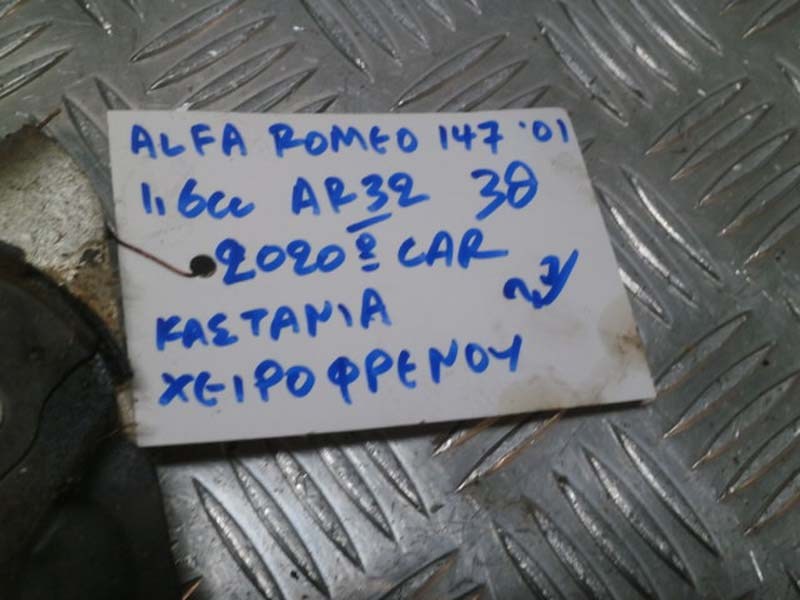 ALFA ROMEO 147 '01
1,6cc AR32 3θ
2020 CAR
ΚΑΣΤΑΝΙΑ
ΧΕΙΡΟΦΡΕΝΟΥ